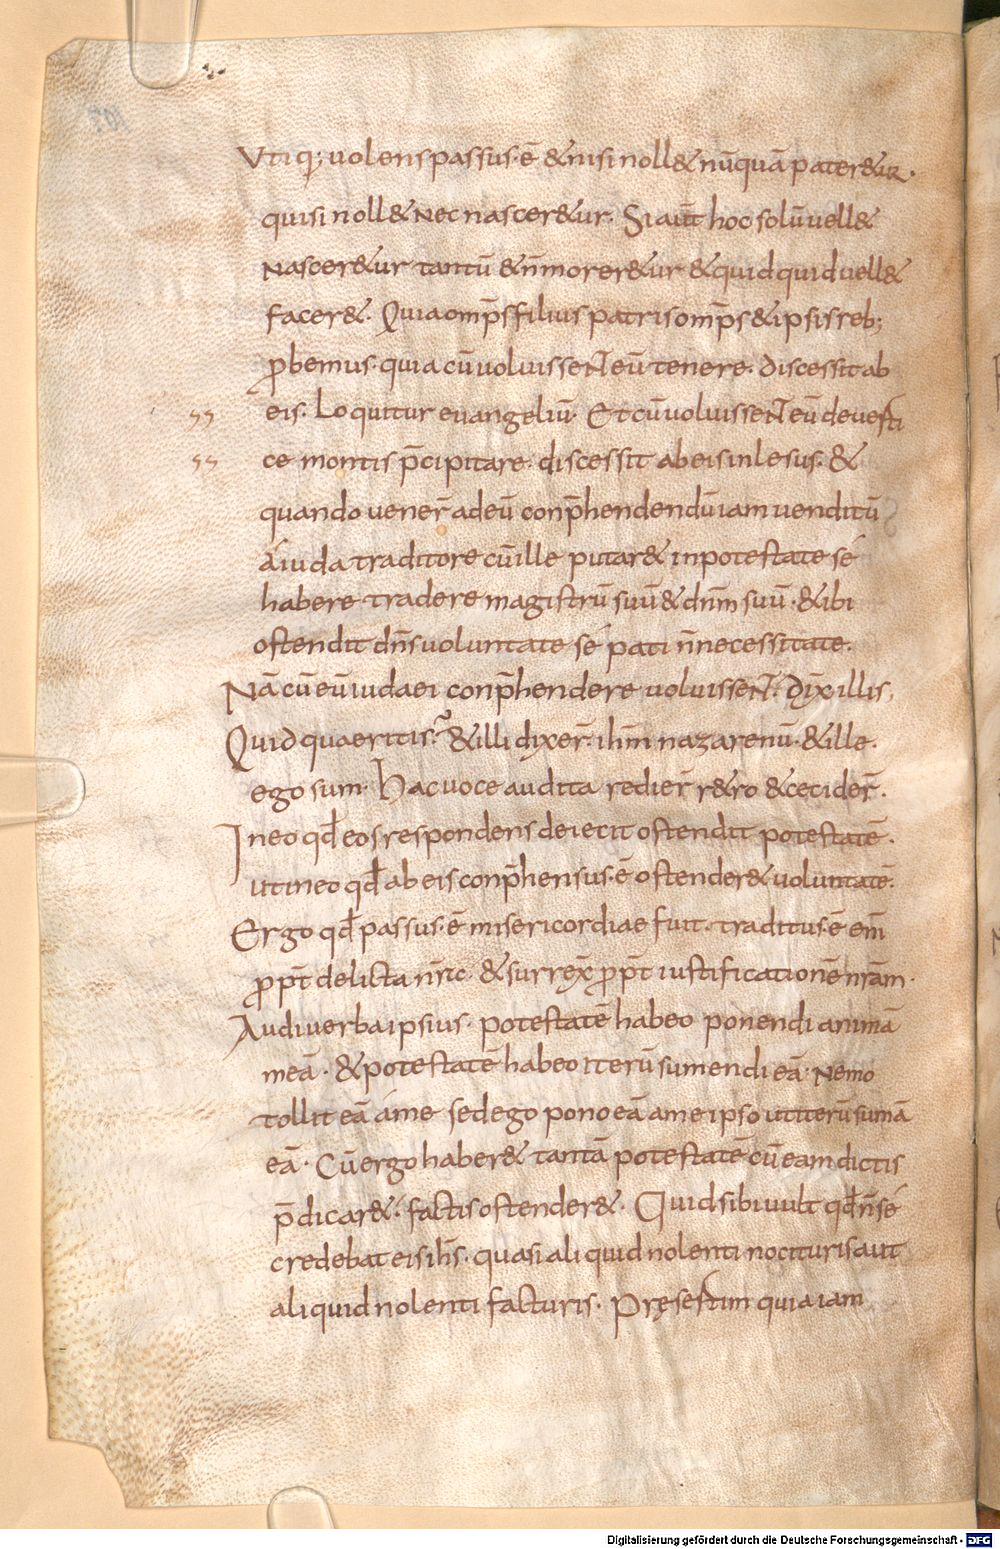 Utiq; uolens passus·ē & nisi noll& nūquā pater&ur·
qui si noll& nec nascer&ur· Si aūt hoc solū uell&
nascer&ur tantū & n̄ morer&ur & quidquid uell&
facer&· Quia omp̄s filius patris omp̄s & ipsis reb;
ꝓbemus· quia cū uoluissent̄ eū tenere· discessit ab
eis· Loquitur euangeliū· Et cū uoluissent̄ eū de uesti
ce montis p̄cipitare· discessit ab eis inlesus· &
quando uener̄ ad eū conp̄hendendū iam uenditū
á iuda traditore cū ille putar& in potestate sé
habere· tradere magistrū suū & dn̄m suū· & ibi
ostendit dn̄s uoluntate sé pati n̄ necessitate·
Nā cū eū iudaei conp̄hendere uoluissent̄· dix̄ illis,
Quid quaeritis? & illi dixer̄· ih̄m nazarenū· & ille·
ego sum· Hac uoce audita redier̄ r&ro & cecider̄·
In eo qd̄ eos respondens deiecit ostendit potestatē·
ut in eo qd̄ ab eis conp̄hensus·ē ostender& uoluntatē·
Ergo qd̄ passus·ē misericordiae fuit· traditus·ē em̄
ꝓpt̄ delicta nr̄a· & surrex̄ ꝓpt̄ iustificationē nr̄am·
Audi uerba ipsius· potestatē habeo ponendi animā
meā· & potestatē habeo iterū sumendi eā· Nemo
tollit eā áme sed ego pono eā ame ipso ut iterū sumā
eā· Cū ergo haber& tantā potestatē cū eam dictis
p̄dicar&· factis ostender&· Quid sibi uult qd̄ n̄ sé
credebat eis ih̄s· quasi aliquid nolenti nocituris aut
aliquid nolenti facturis· Pręsertim quia iam
Digitalisierung gefördert durch die Deutsche Forschungsgemeinschaft - DFG